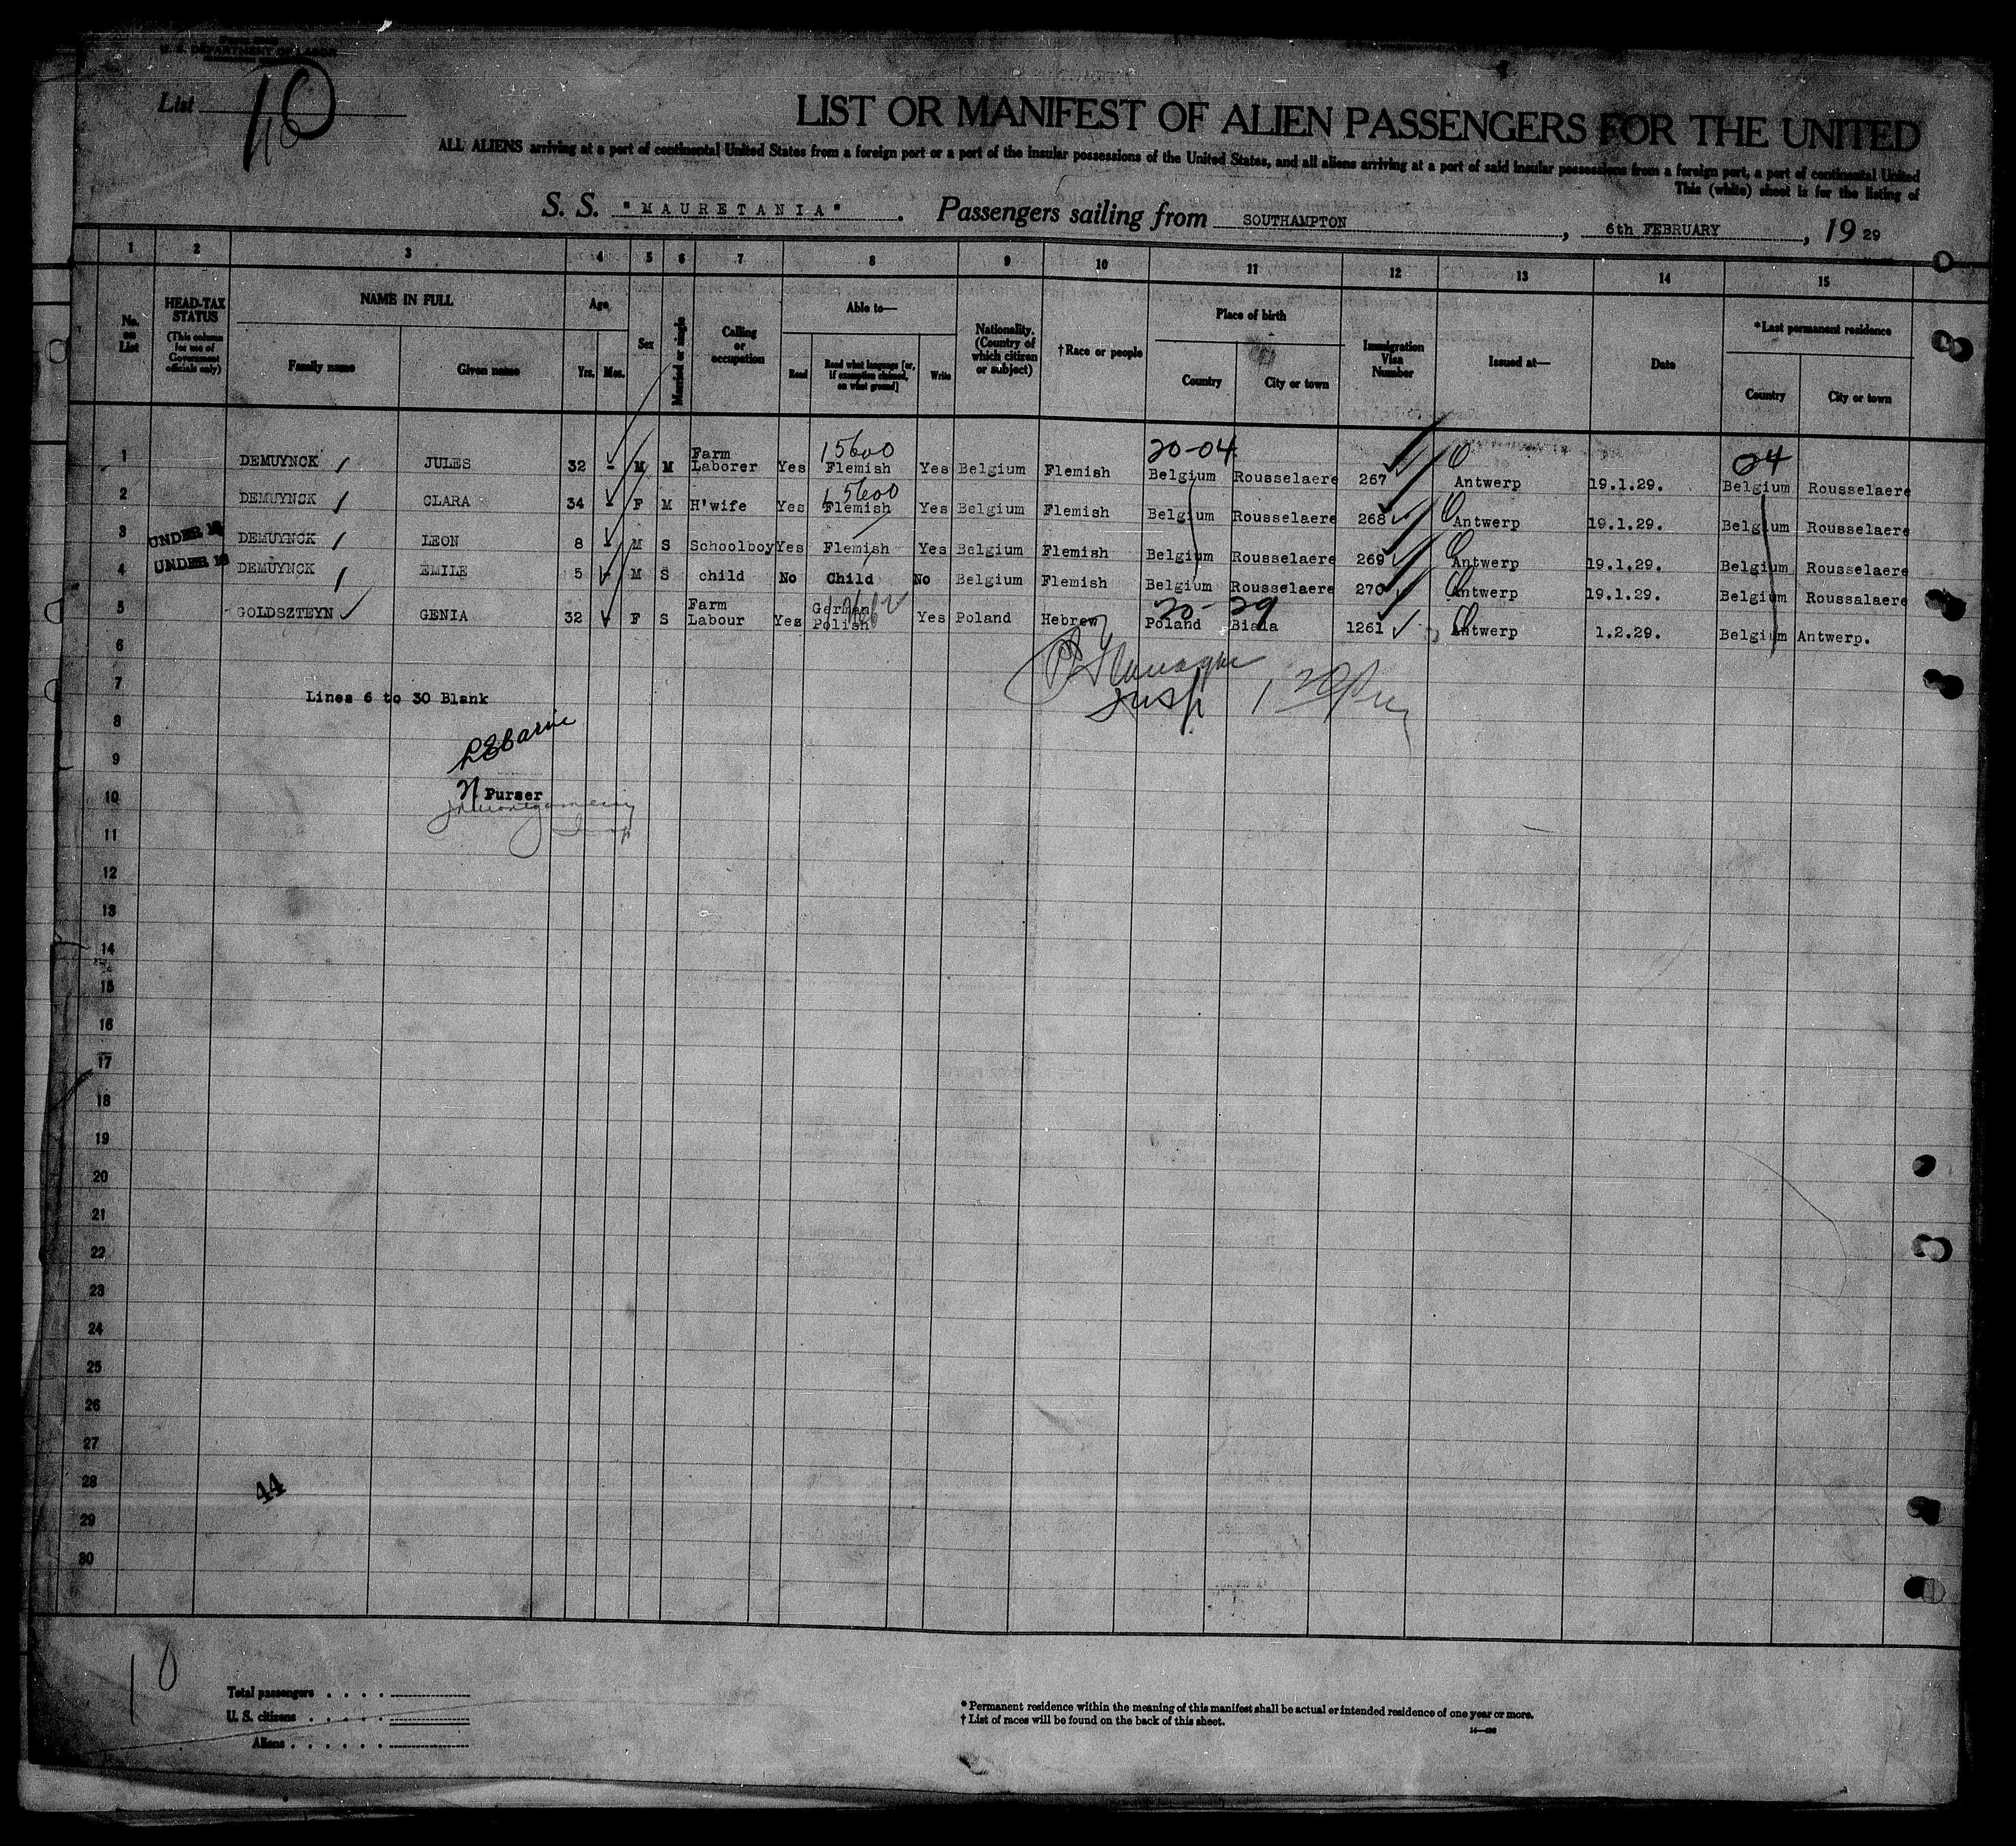 U. S. DEPARTMENT OF LABOR
List 10
LIST OR MANIFEST OF ALIEN PASSENGERS FOR THE UNITED
ALL ALIENS arriving at a port of continental United States from a foreign port or a port of the insular possessions of the United States, and all aliens arriving at a port of said insular possessions from a foreign port, a port of continental United
This (white) sheet is for the listing of
S. S. "MAURETANIA". Passengers sailing from SOUTHAMPTON, 6th FEBRUARY, 1929
1 2 3 4 5 6 7 8 9 10 11 12 13 14 15
No. on List
HEAD-TAX STATUS (This column for use of Government officials only)
NAME IN FULL
Family name Given name
Age
Yrs. Mos.
Sex
Married or single
Calling or occupation
Able to—
Read Read what language [or, if exemption claimed, on what ground] Write
Nationality. (Country of which citizen or subject)
†Race or people
Place of birth
Country City or town
Immigration Visa Number
Issued at—
Date
*Last permanent residence
Country City or town
15600 20-04 04
1 DEMUYNCK JULES 32 - M M Farm Laborer Yes Flemish Yes Belgium Flemish Belgium Rousselaere 267 Antwerp 19.1.29. Belgium Rousselaere
15600
2 DEMUYNCK CLARA 34 - F M H'wife Yes Flemish Yes Belgium Flemish Belgium Rousselaere 268 Antwerp 19.1.29. Belgium Rousselaere
3 UNDER 16 DEMUYNCK LEON 8 - M S Schoolboy Yes Flemish Yes Belgium Flemish Belgium Rousselaere 269 Antwerp 19.1.29. Belgium Rousselaere
4 UNDER 16 DEMUYNCK EMILE 5 - M S child No Child No Belgium Flemish Belgium Rousselaere 270 Antwerp 19.1.29. Belgium Roussalaere
20-29
5 GOLDSZTEYN GENIA 32 F S Farm Labour Yes German Polish Yes Poland Hebrew Poland Biala 1261 Antwerp 1.2.29. Belgium Antwerp.
6
7 Lines 6 to 30 Blank Insp
8
9
10 Purser
11
12
13
14
15
16
17
18
19
20
21
22
23
24
25
26
27
28 44
29
30
10
Total passengers . . . .
U. S. citizens . . . . .
Aliens . . . . . .
* Permanent residence within the meaning of this manifest shall be actual or intended residence of one year or more.
† List of races will be found on the back of this sheet.